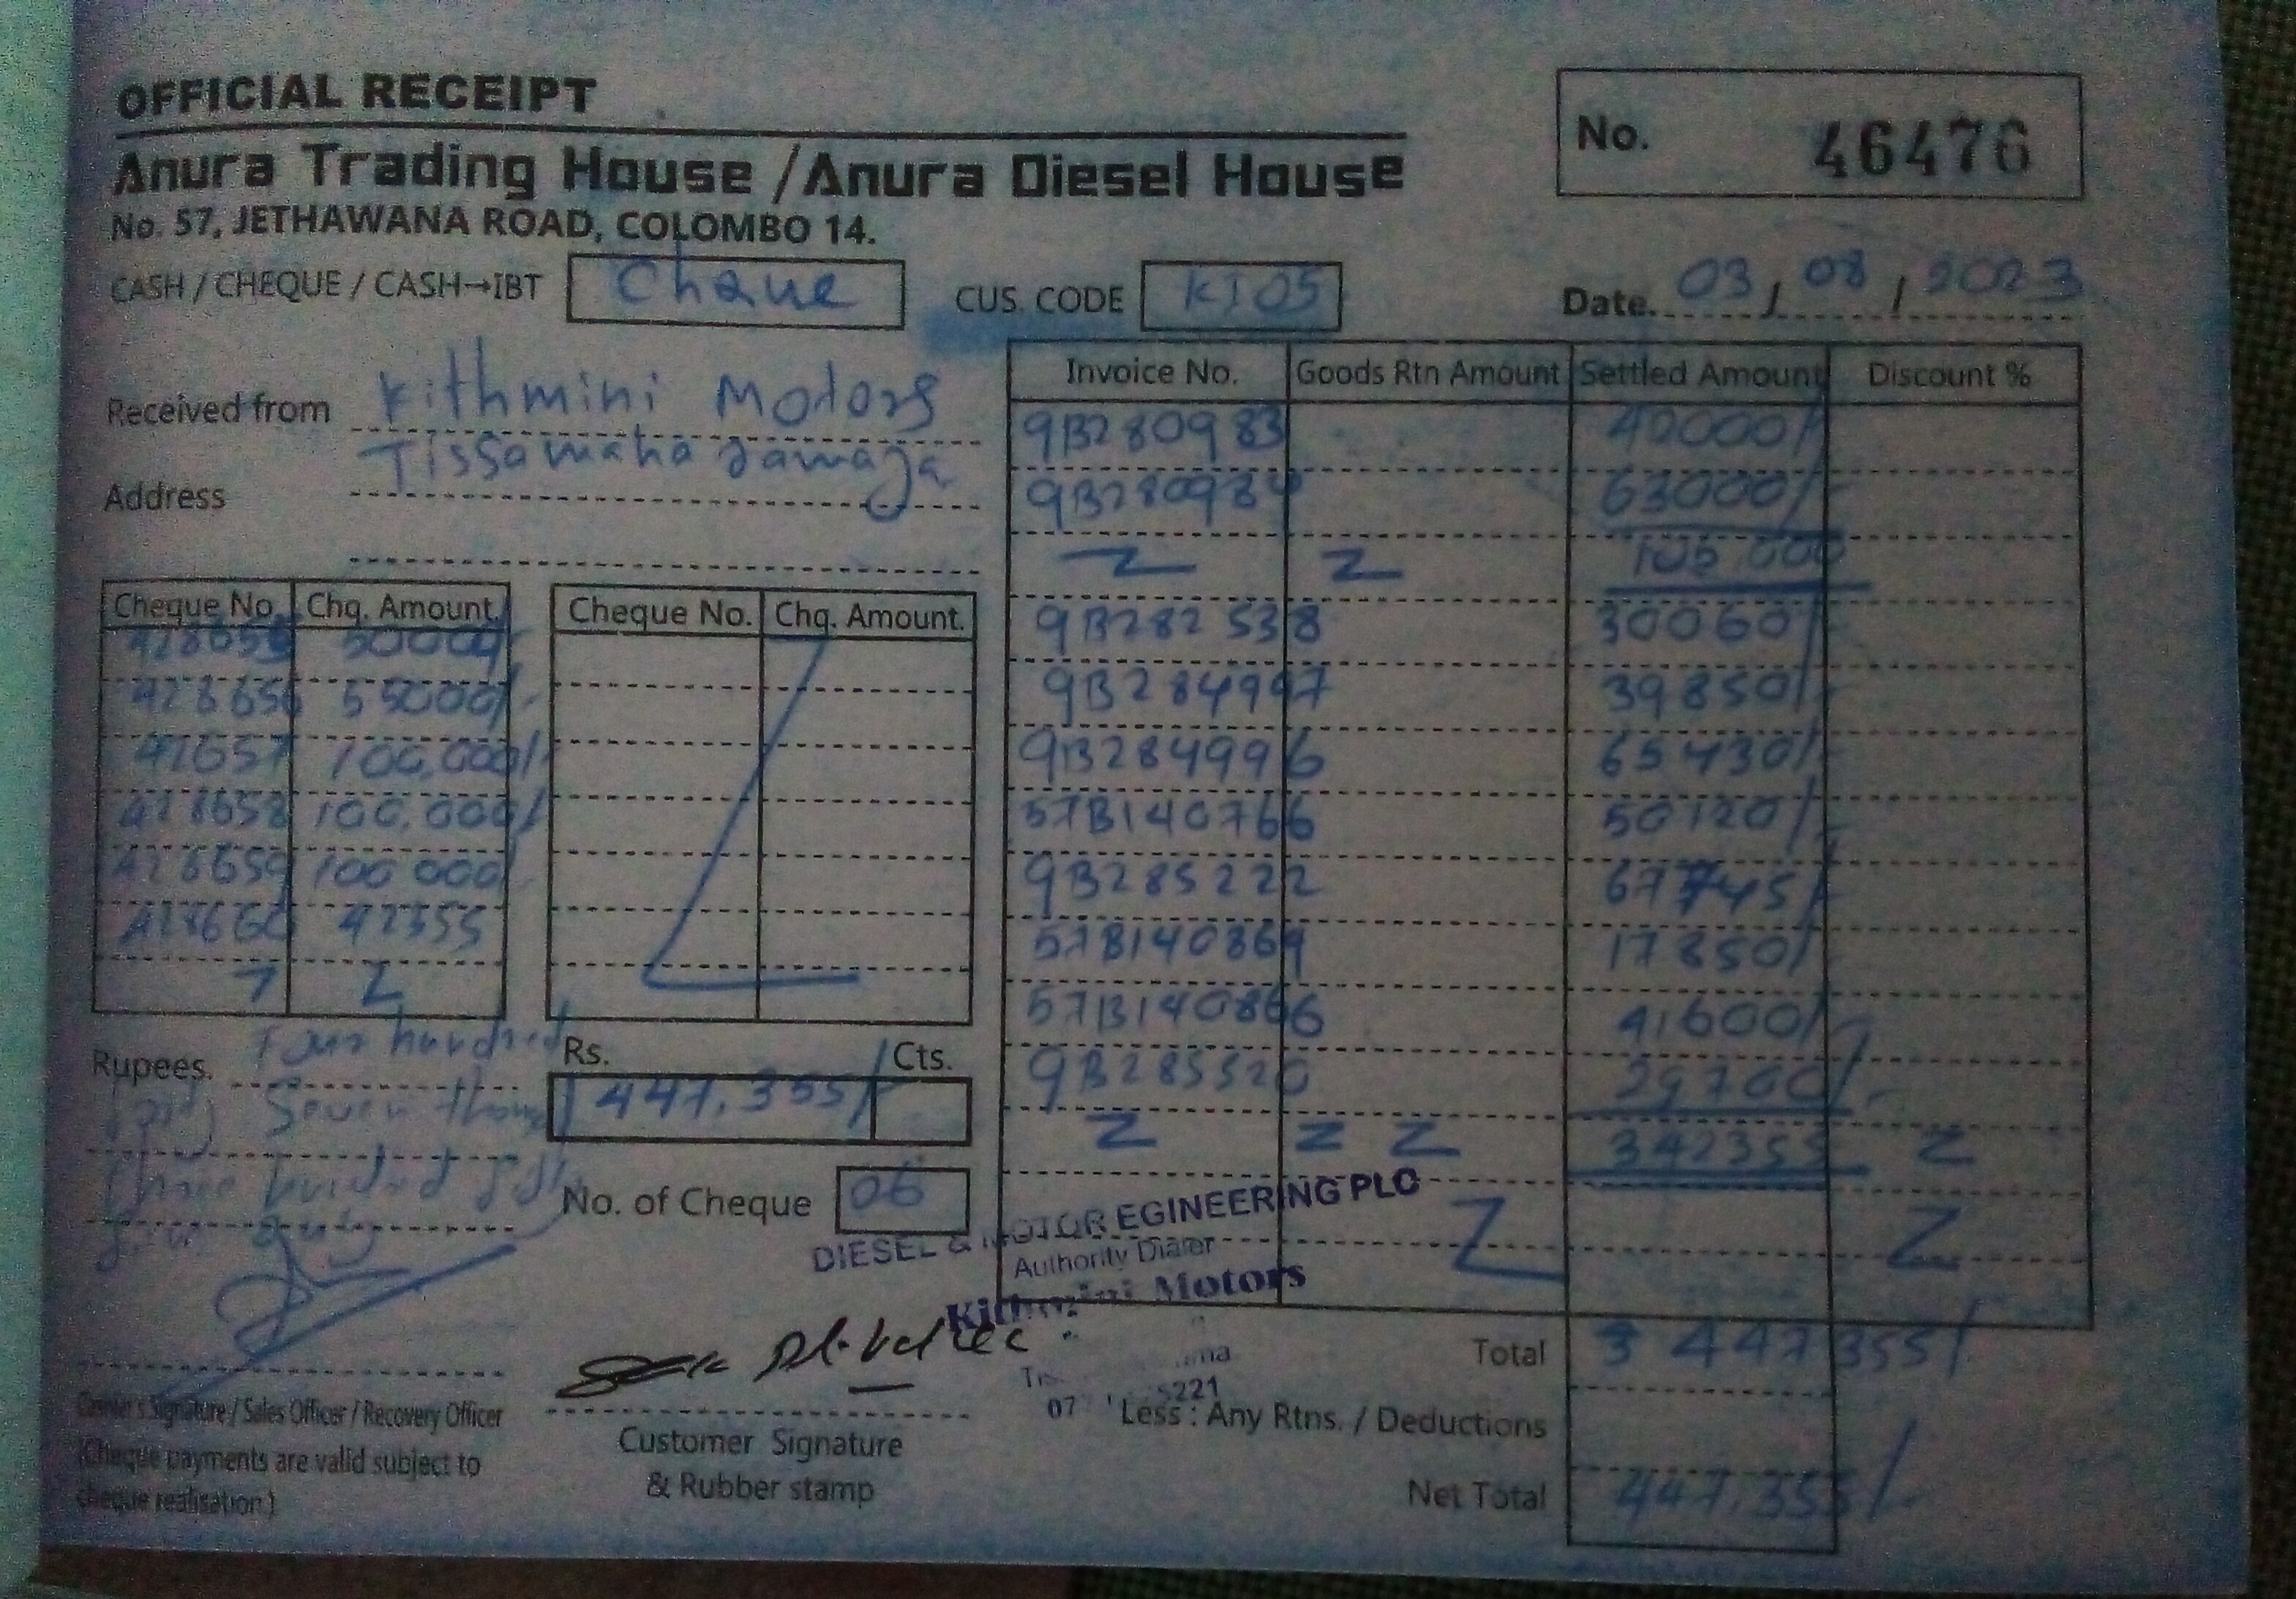 OFFICIAL RECEIPT
No. 46476
Anura Trading House / Anura Diesel House
No. 57, JETHAWANA ROAD, COLOMBO 14.
CASH / CHEQUE / CASH→IBT Chaue CUS. CODE KI05 Date. 03 / 08 / 2023
Received from Kithmini Motors
Address Tissamaha
Invoice No. Goods Rtn Amount Settled Amount Discount %
9B280983 40000/-
9B280984 63000/-
Z Z 105,000
9B282538 30060/-
9B284997 39850/-
9B284996 65430/-
57B140766 50120/-
9B285222 67745/-
57B140869 17850/-
57B140866 41600/-
9B285520 29700/-
Z Z Z 342355 Z
Z Z
Cheque No. Chq. Amount. Cheque No. Chq. Amount.
50000/-
428656 55000/-
42657 100,000/-
428658 100,000/-
428659 100 000/-
428660 42355
Z
Rupees. Four hundred
Seven
Three hundred
Rs. Cts.
447,355/
No. of Cheque 06
DIESEL & MOTOR EGINEERING PLC
Authority Dialer
Kithmini Motors
Total 447355/
Less : Any Rtns. / Deductions
Net Total 447,355/-
Cashier's Signature / Sales Officer / Recovery Officer
(Cheque payments are valid subject to
cheque realisation)
Customer Signature
& Rubber stamp